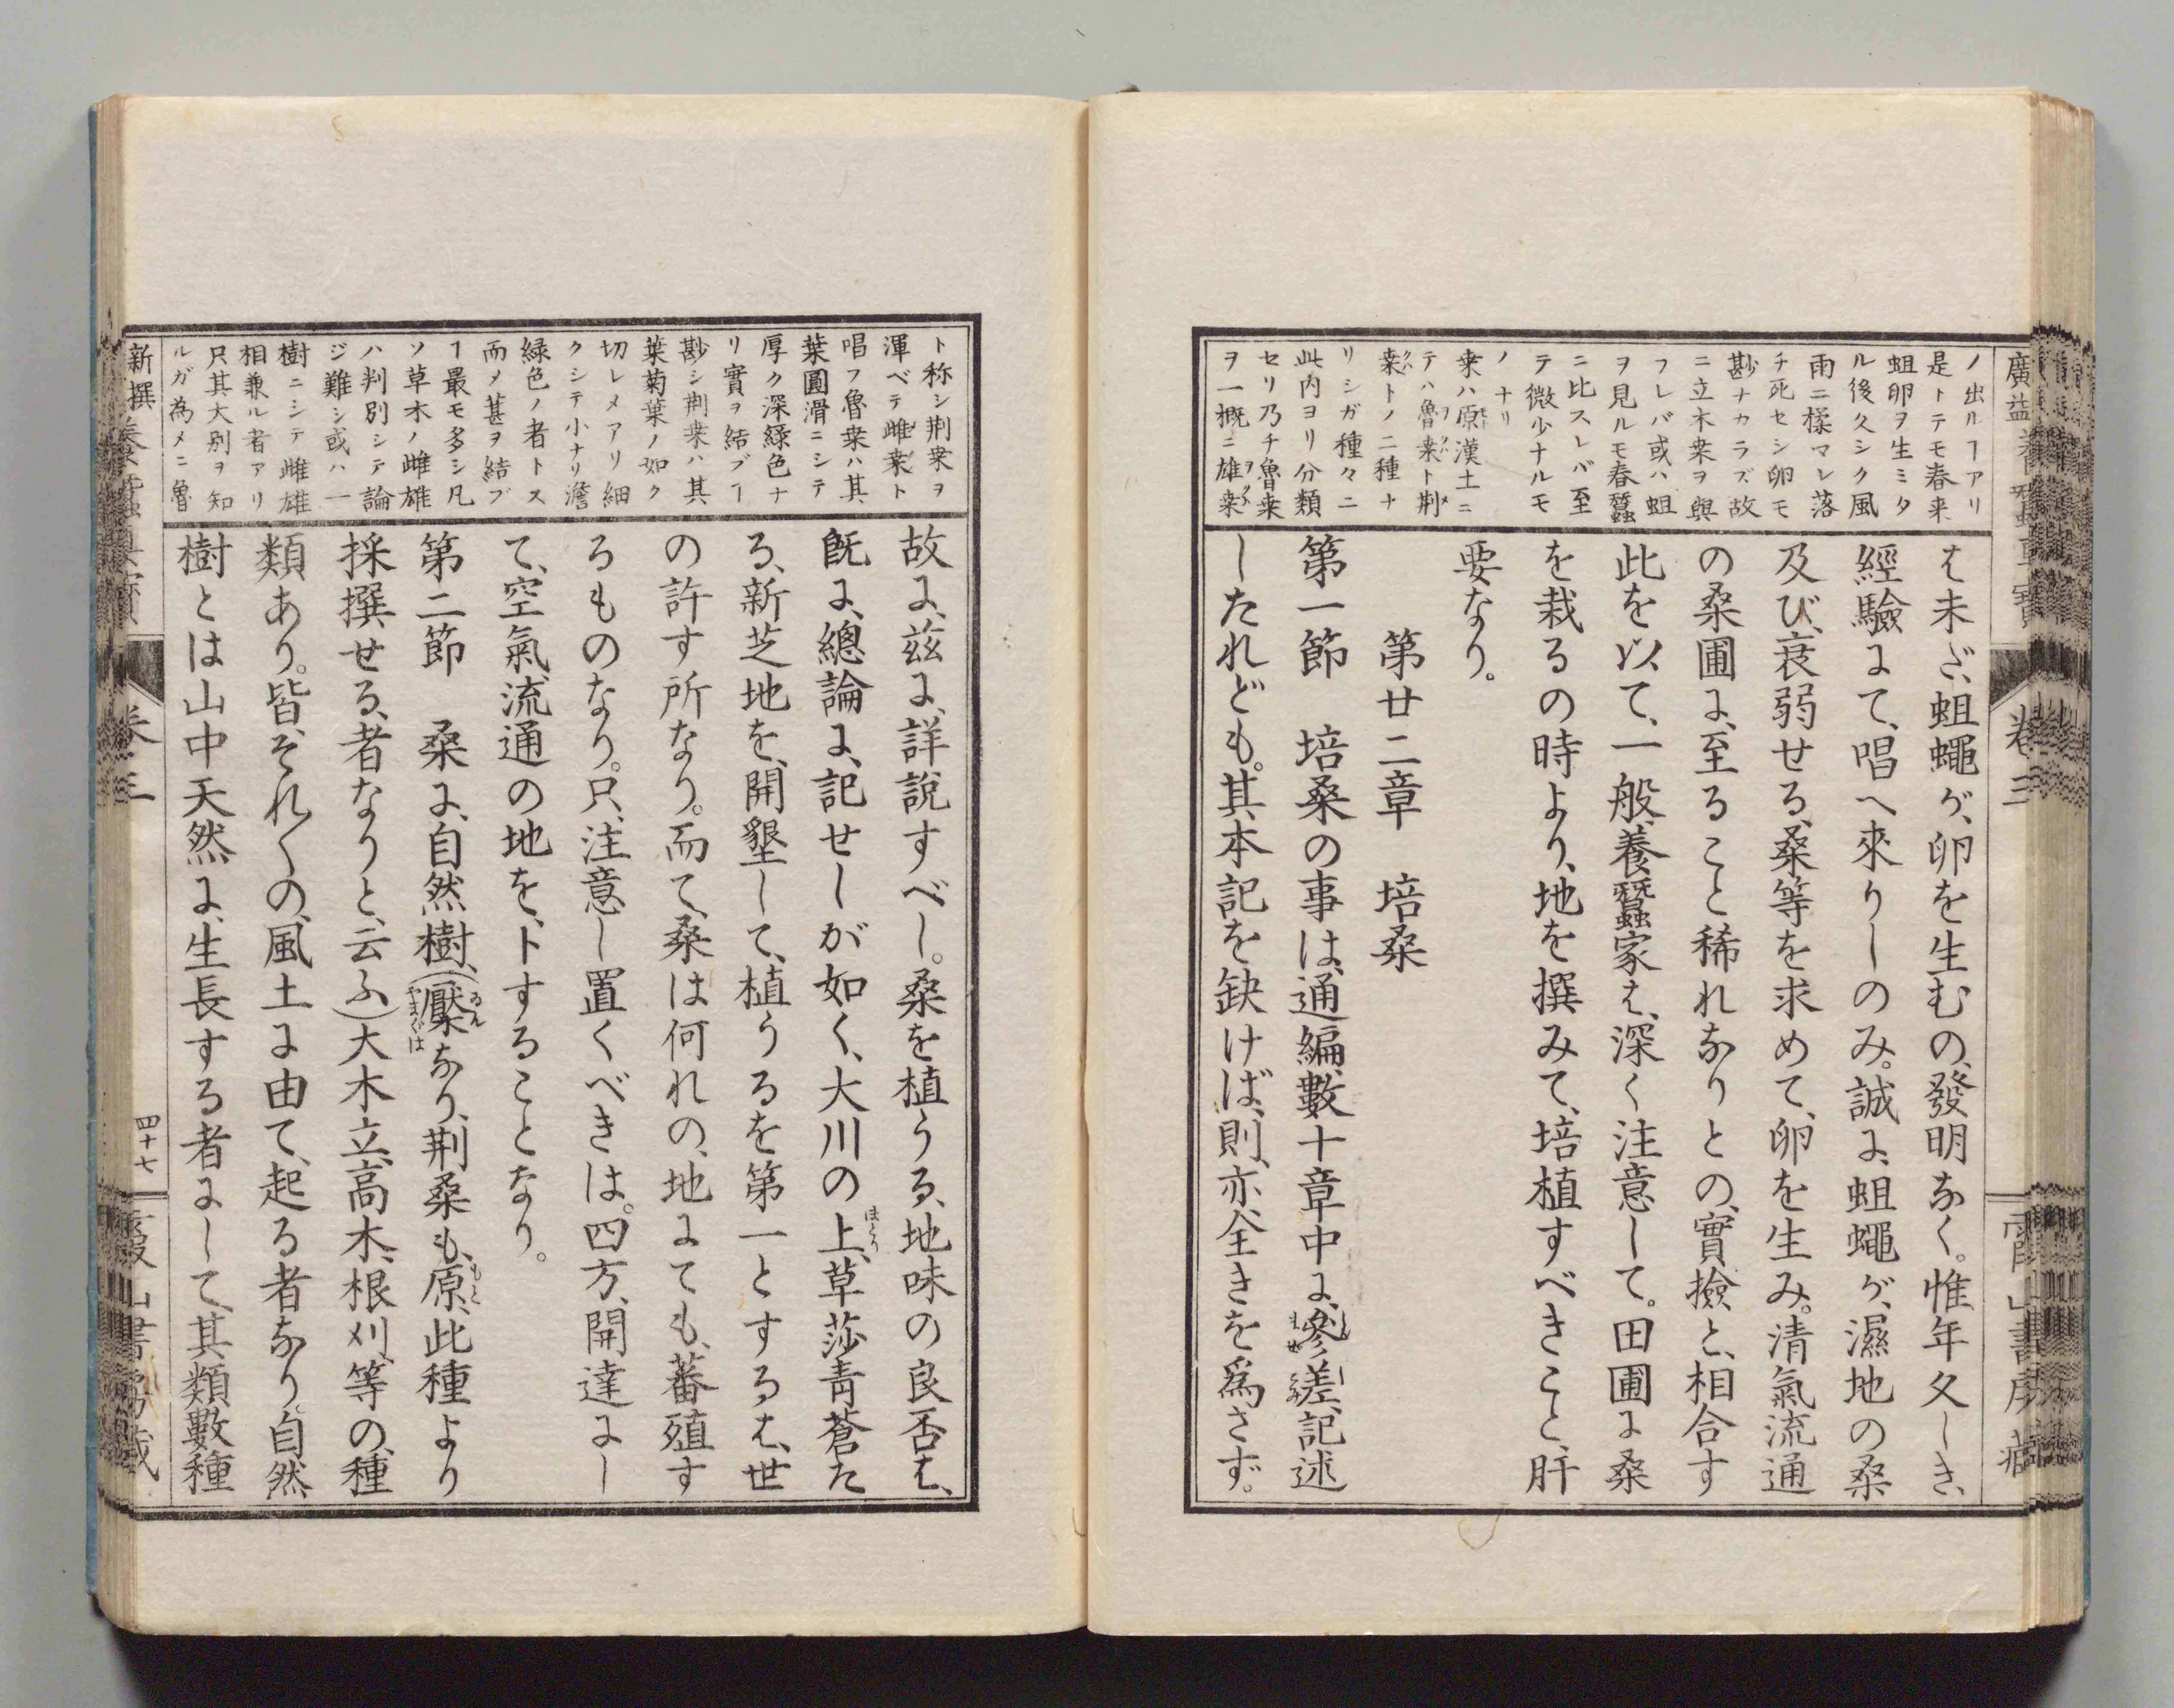 ノ出ルヿアリ
是トテモ春来
蛆卵ヲ生ミタ
ル後久シク風
雨ニ樣マレ落
チ死セシ卵モ
尠ナカラズ故
ニ立木桒ヲ與
フレバ或ハ蛆
ヲ見ルモ春蠶
ニ比スレバ至
テ微少ナルモ
ノナリ
桒ハ原漢土ニ
テハ魯桒ト荆
桒トノ二種ナ
リシガ種々ニ
此内ヨリ分類
セリ乃チ魯桒
ヲ一概ニ雄桒
は未だ、蛆蠅が、卵を生むの、發明なく。惟年久しき、
經驗にて、唱へ來りしのみ。誠に、蛆蠅が、濕地の桑
及び、衰弱せる、桑等を求めて、卵を生み。清氣流通
の桑圃に、至ること稀れなりとの、實撿と、相合す
此を以て、一般、養蠶家は、深く注意して。田圃に桑
を栽るの時より、地を撰みて、培植すべきこと、肝
要なり。
第廿二章　培桑
第一節　培桑の事は、通編、數十章中に、參差、記述
したれども。其、本記を缺けば、則、亦、全きを爲さず。
卷三
ト称シ荆桒ヲ
渾ベテ雌桒ト
唱フ魯桒ハ其
葉圓滑ニシテ
厚ク深緑色ナ
リ實ヲ結ブヿ
尠シ荆桒ハ其
葉菊葉ノ如ク
切レメアリ細
クシテ小ナリ澹
緑色ノ者トス
而メ甚ヲ結ブ
ヿ最モ多シ凡
ソ草木ノ雌雄
ハ判別シテ論
ジ難シ或ハ一
樹ニシテ雌雄
相兼ル者アリ
只其大别ヲ知
ルガ為メニ魯
故に、茲に、詳説すべし。桑を植うる、地味の良否は、
既に、總論に、記せしが如く、大川の上、草莎青蒼た
る、新芝地を、開墾して、植うるを第一とするは、世
の許す所なり。而て、桑は何れの、地にても、蕃殖す
るものなり。只、注意し置くべきは。四方、開達にし
て、空氣、流通の地を、卜することなり。
第二節　桑に、自然樹、(檿なり、荆桑も、原、此種より
採撰せる、者なりと、云ふ)大木立、高木、根刈、等の、種
類あり。皆、それ〱の、風土に由て、起る者なり。自然
樹とは山中天然に、生長する者にして、其類數種
新撰養蠶眞寶
卷三
四十七